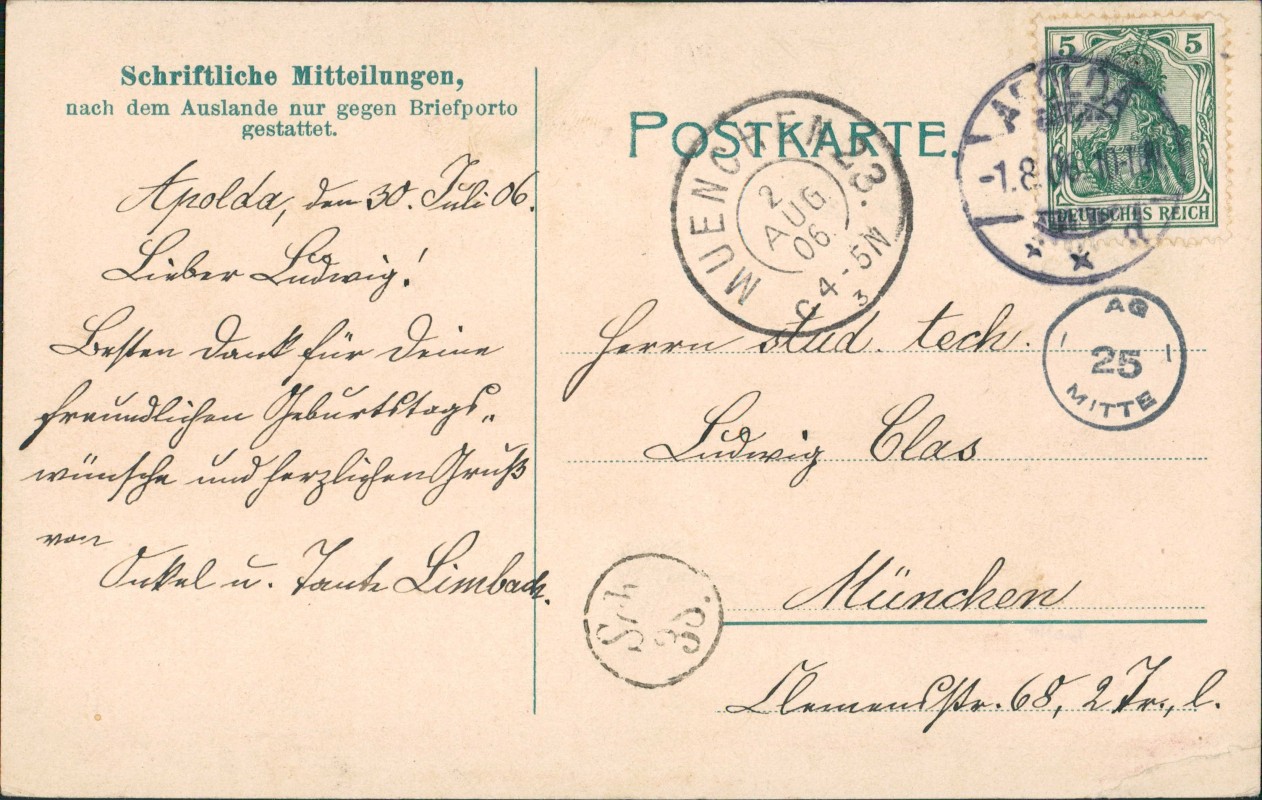 Schriftliche Mitteilungen,
nach dem Auslande nur gegen Briefporto
gestattet.
Apolda, den 30. Juli 06.
Lieber Ludwig!
Besten Dank für Deine
freundlichen Geburtstags-
wünsche und herzlichen Gruß
von
Onkel u. Tante Limbach.
POSTKARTE.
5 5
DEUTSCHES REICH
APOLDA
-1.8.06.
MUENCHEN 23.
2.
AUG
06.
4-5N
3
AG
25
MITTE
Herrn stud. tech.
Ludwig Clas
München
Clemensstr. 68, 2 Tr., l.
Sch
38.